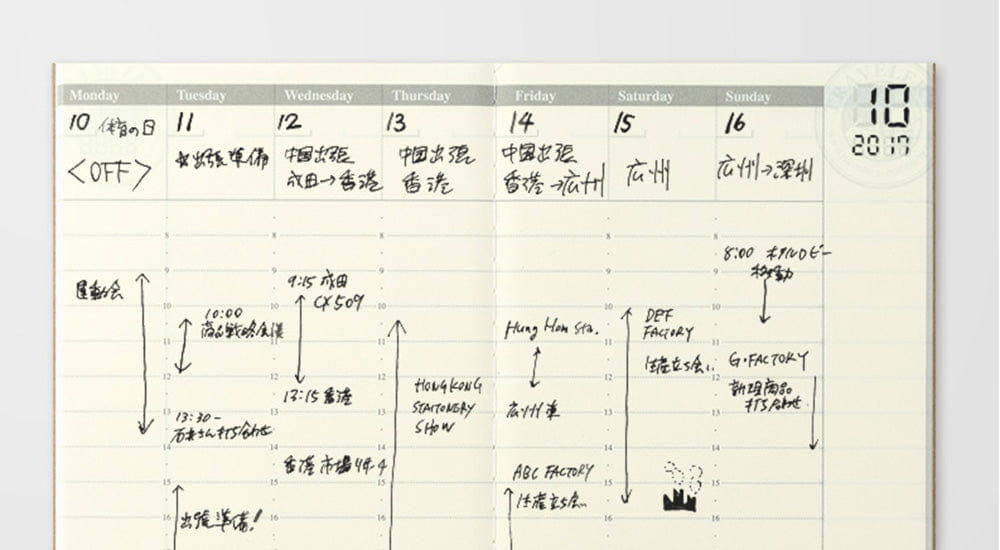 Monday
Tuesday
Wednesday
Thursday
Friday
Saturday
Sunday
10
2017
10 体育の日
<OFF>
運動会
11
出張準備
10:00
商品戦略会議
13:30-
打ち合わせ
出張準備!
12
中国出張
成田→香港
9:15 成田
CX509
13:15 香港
香港市場リサーチ
13
中国出張
香港
HONGKONG
STAITONERY
SHOW
14
中国出張
香港→広州
Hung Hom Sta.
広州東
ABC FACTORY
生産立ち会い
15
広州
DEF
FACTORY
生産立ち会い
16
広州→深圳
8:00 ホテルロビー
移動
G.FACTORY
新規商品
打ち合わせ
8
9
10
11
12
13
14
15
16